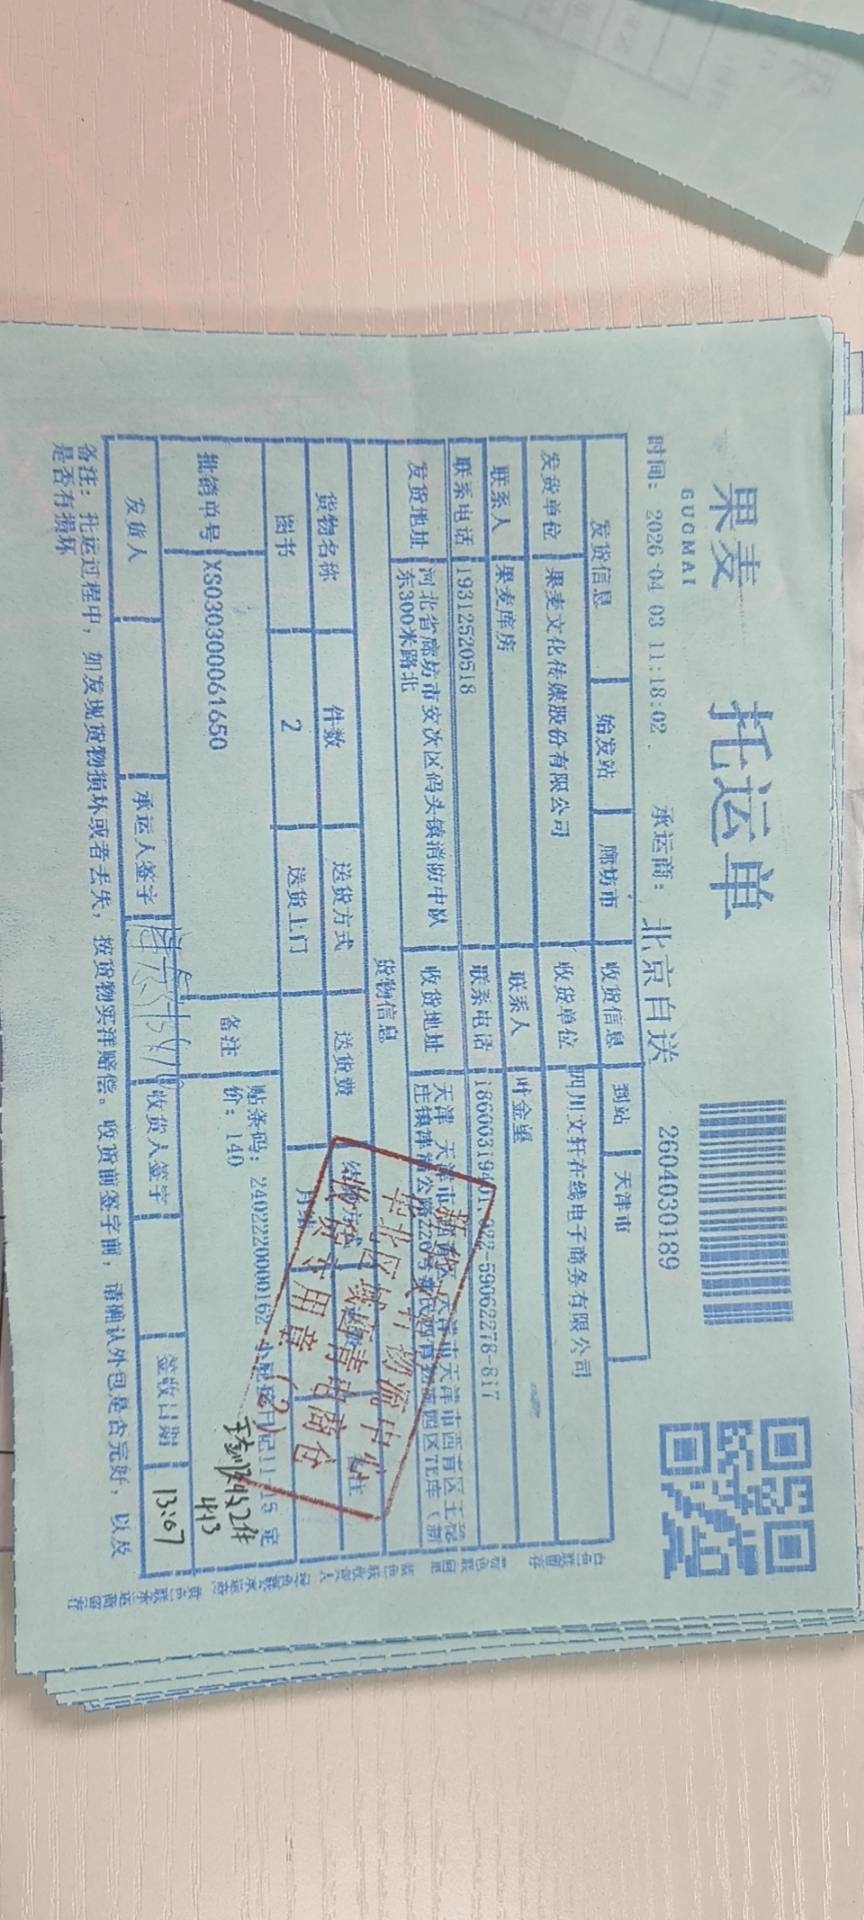 果麦 托运单
GUOMAI
时间: 2026-04-03 11:18:02 承运商: 北京自送 2604030189
发货信息 始发站 廊坊市 收货信息 到站 天津市
发货单位 果麦文化传媒股份有限公司 收货单位 四川文轩在线电子商务有限公司
联系人 果麦库房 联系人 叶金星
联系电话 19312520518 联系电话 18600319401、022-59062278-817
发货地址 河北省廊坊市安次区码头镇消防中队
东300米路北
收货地址 天津 天津市 天津市天津市西青区王
庄镇津
货物信息
货物名称 件数 送货方式 送货费 结算方式 备注
图书 2 送货上门 月结
批销单号 XS030300061650 备注 贴条码: 2402220000162 小屁孩日记11-15 定
价: 140
4.3
发货人 承运人签字 收货人签字 签收日期 13:07
备注: 托运过程中, 如发现货物损坏或者丢失, 按货物实洋赔偿。收货前签字前, 请确认外包是否完好, 以及
是否有损坏
白色联留存 蓝色联收货人